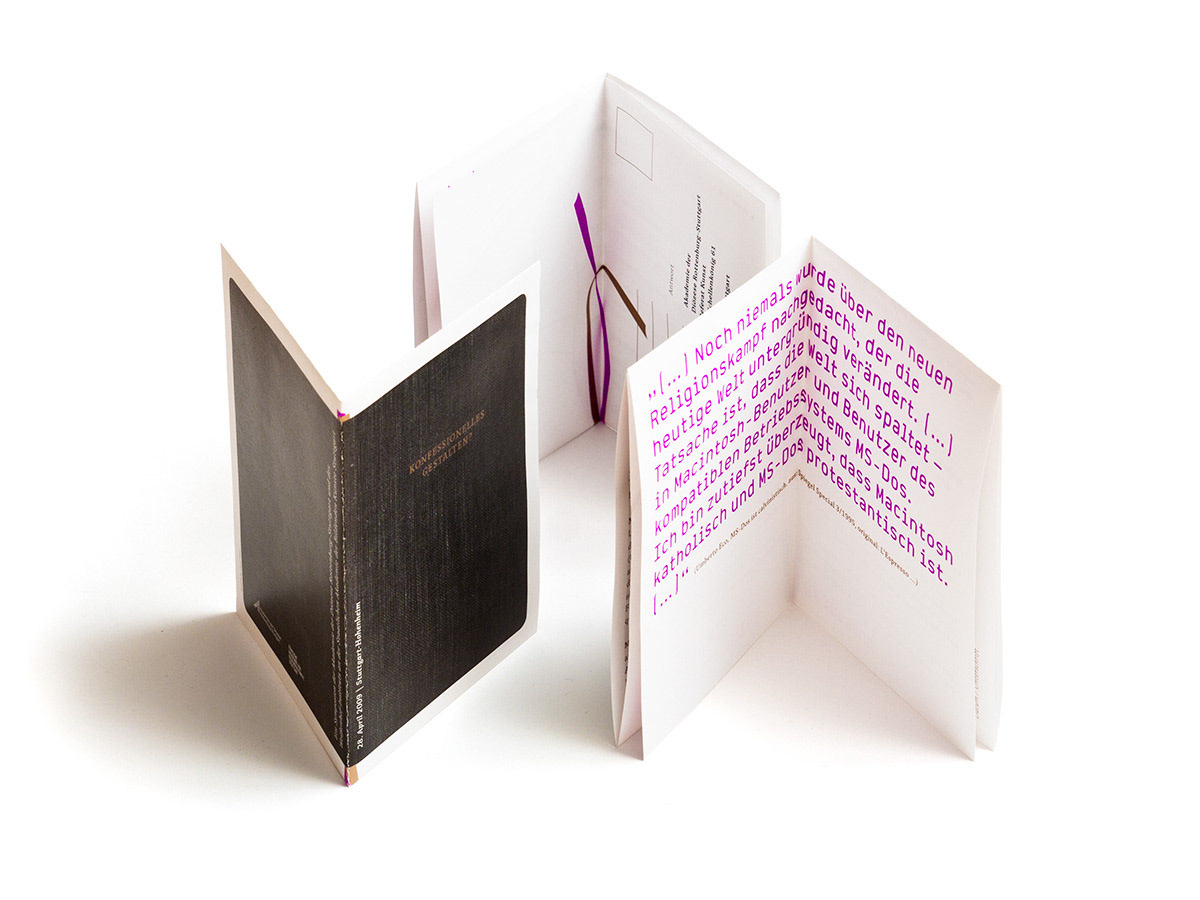 KONFESSIONELLES
GESTALTEN?
28. April 2009 | Stuttgart-Hohenheim
Antwort
Akademie der
Diözese Rottenburg-Stuttgart
Referat Kunst
Schellenkönig 61
Stuttgart
„(...) Noch niemals wurde über den neuen
Religionskampf nachgedacht, der die
heutige Welt untergründig verändert. (...)
Tatsache ist, dass die Welt sich spaltet –
in Macintosh-Benutzer und Benutzer des
kompatiblen Betriebssystems MS-Dos.
Ich bin zutiefst überzeugt, dass Macintosh
katholisch und MS-Dos protestantisch ist.
(...)“
(Umberto Eco, MS-Dos ist calvinistisch, aus: Spiegel Special 3/1995, original: L'Espresso ...)